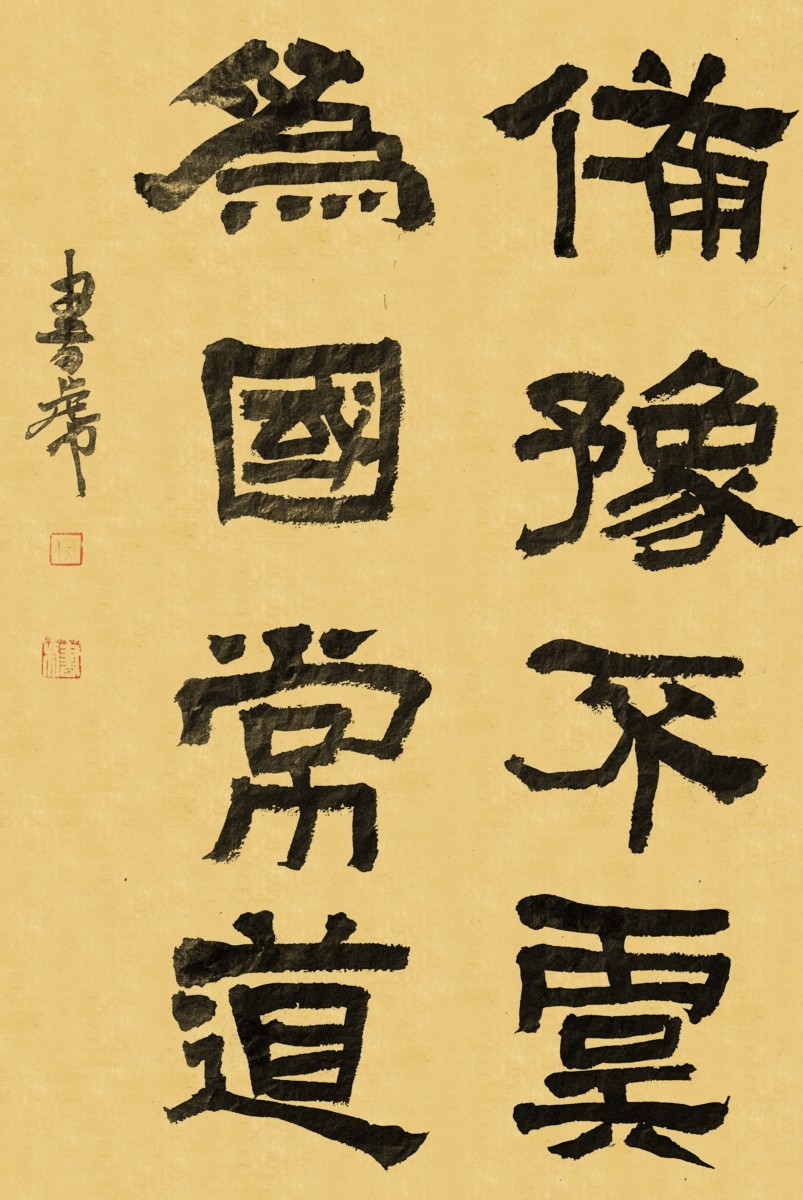 備豫不虞
為國常道
書席